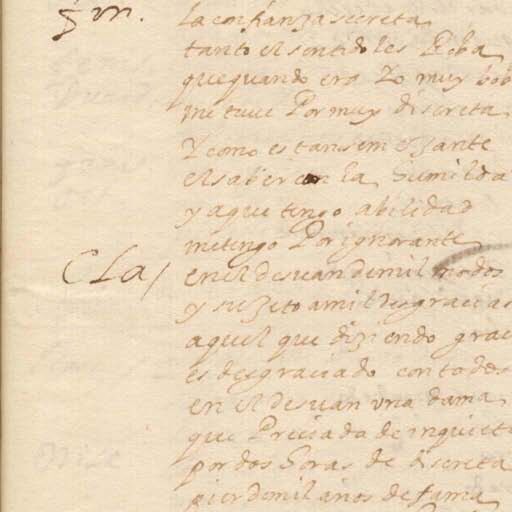 la confianza secreta
tanto el sentido les Roba
que quando era Yo muy bob
me tuve Por muy discreta
Y como es tan semejante
el saber con la humilda
y a que tengo abilidad
me tengo Por ignorante
Cla/ en el desuan de mil modos
y sujeto a mil desgracias
aquel que diziendo grac
es desgraciado con todos
en el desuan una dama
que Preciada de inquiet
por dos horas de discreta
pierde mil años de fama